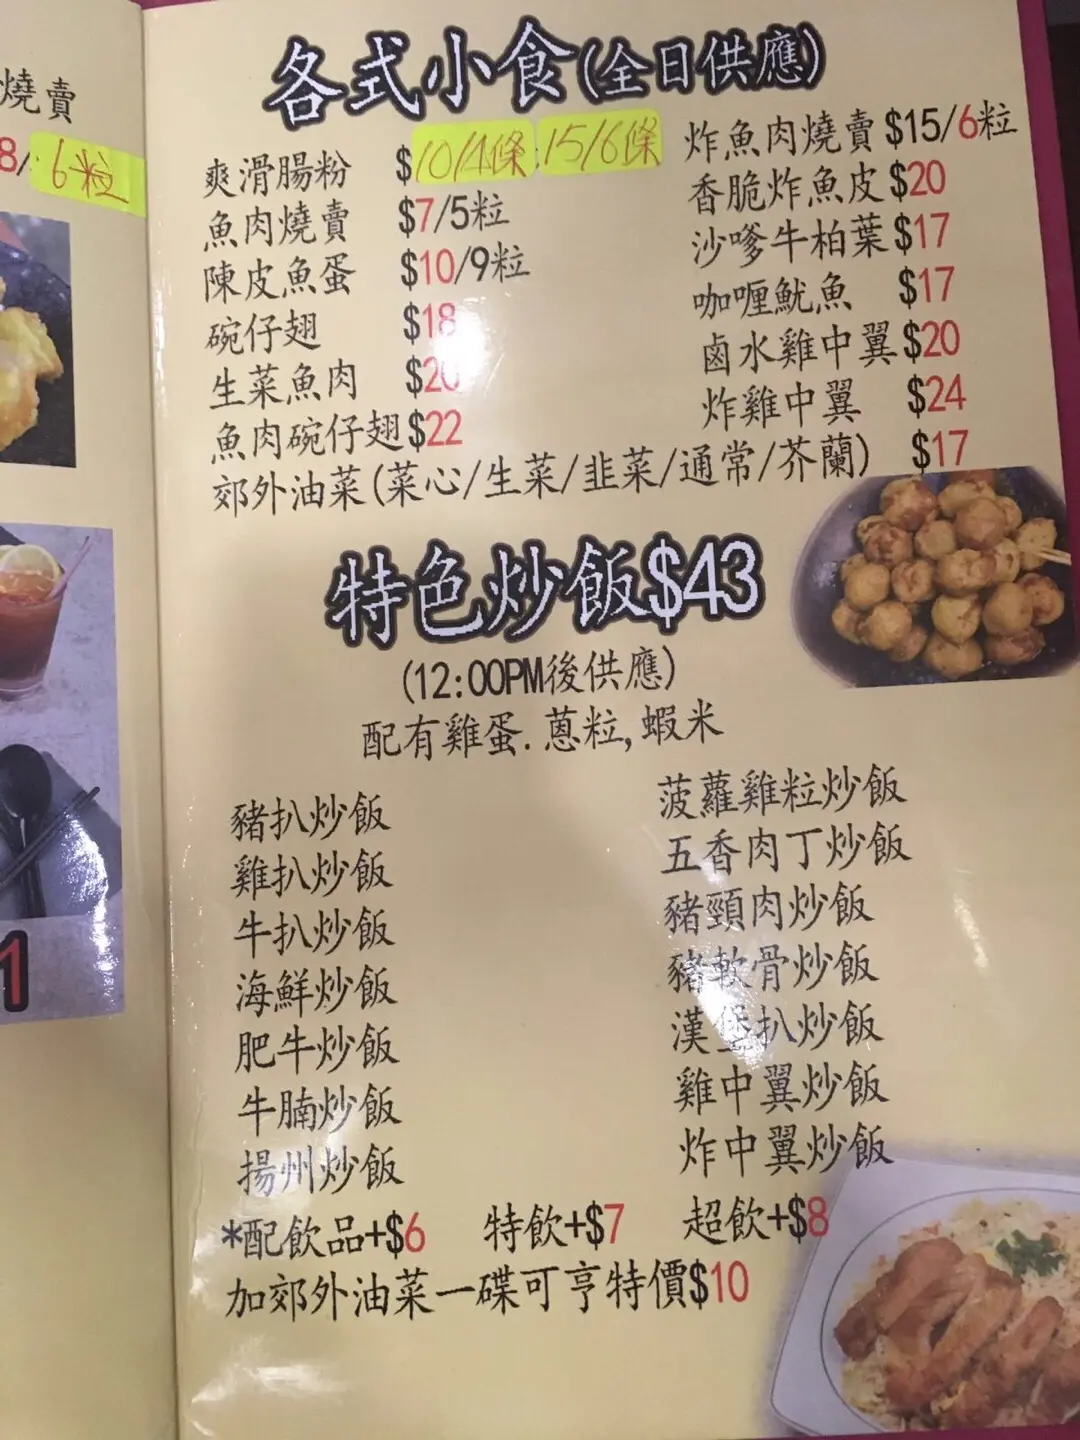 燒賣
8/ 6粒
1
各式小食(全日供應)
爽滑腸粉 $10/4條 15/6條
魚肉燒賣 $7/5粒
陳皮魚蛋 $10/9粒
碗仔翅 $18
生菜魚肉 $20
魚肉碗仔翅$22
炸魚肉燒賣$15/6粒
香脆炸魚皮$20
沙嗲牛柏葉$17
咖喱魷魚 $17
鹵水雞中翼$20
炸雞中翼 $24
郊外油菜(菜心/生菜/韭菜/通常/芥蘭) $17
特色炒飯$43
(12:00PM後供應)
配有雞蛋.蔥粒,蝦米
豬扒炒飯
雞扒炒飯
牛扒炒飯
海鮮炒飯
肥牛炒飯
牛腩炒飯
揚州炒飯
菠蘿雞粒炒飯
五香肉丁炒飯
豬頸肉炒飯
豬軟骨炒飯
漢堡扒炒飯
雞中翼炒飯
炸中翼炒飯
*配飲品+$6 特飲+$7 超飲+$8
加郊外油菜一碟可亨特價$10